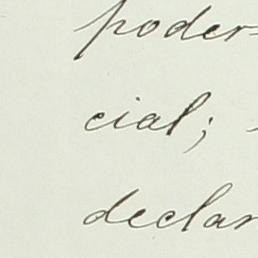 poder=
cial; -
declar